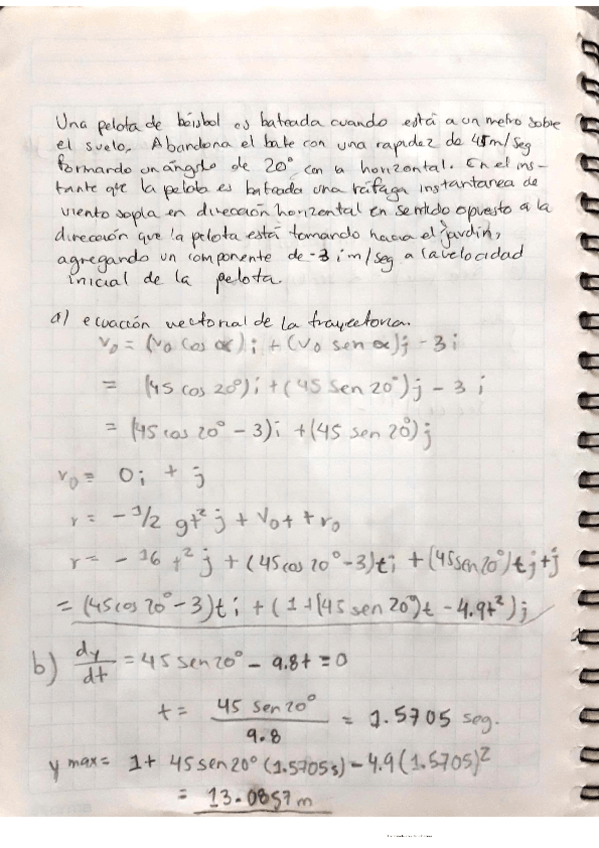 Una pelota de béisbol es bateada cuando está a un metro sobre
el suelo. Abandona el bate con una rapidez de 45m/seg
formando un ángulo de 20° con la horizontal. En el ins-
tante que la pelota es bateada una ráfaga instantanea de
viento sopla en dirección horizontal en sentido opuesto a la
dirección que la pelota está tomando hacia el jardín,
agregando un componente de -3 i m/seg a la velocidad
inicial de la pelota
a) ecuación vectorial de la trayectoria.
v₀ = (v₀ cos α)i + (v₀ sen α)j - 3i
= (45 cos 20°)i + (45 sen 20°)j - 3 i
= (45 cos 20° - 3)i + (45 sen 20°)j
r₀ = 0i + j
r = - 1/2 gt² j + v₀t + r₀
r = - 16 t² j + (45 cos 20° - 3)ti + (45 sen 20°)tj + j
= (45 cos 20° - 3)t i + (1 + (45 sen 20°)t - 4.9t²)j
b) dy/dt = 45 sen 20° - 9.8t = 0
t = 45 sen 20° / 9.8 = 1.5705 seg.
y max = 1 + 45 sen 20° (1.5705s) - 4.9 (1.5705)²
= 13.0857 m